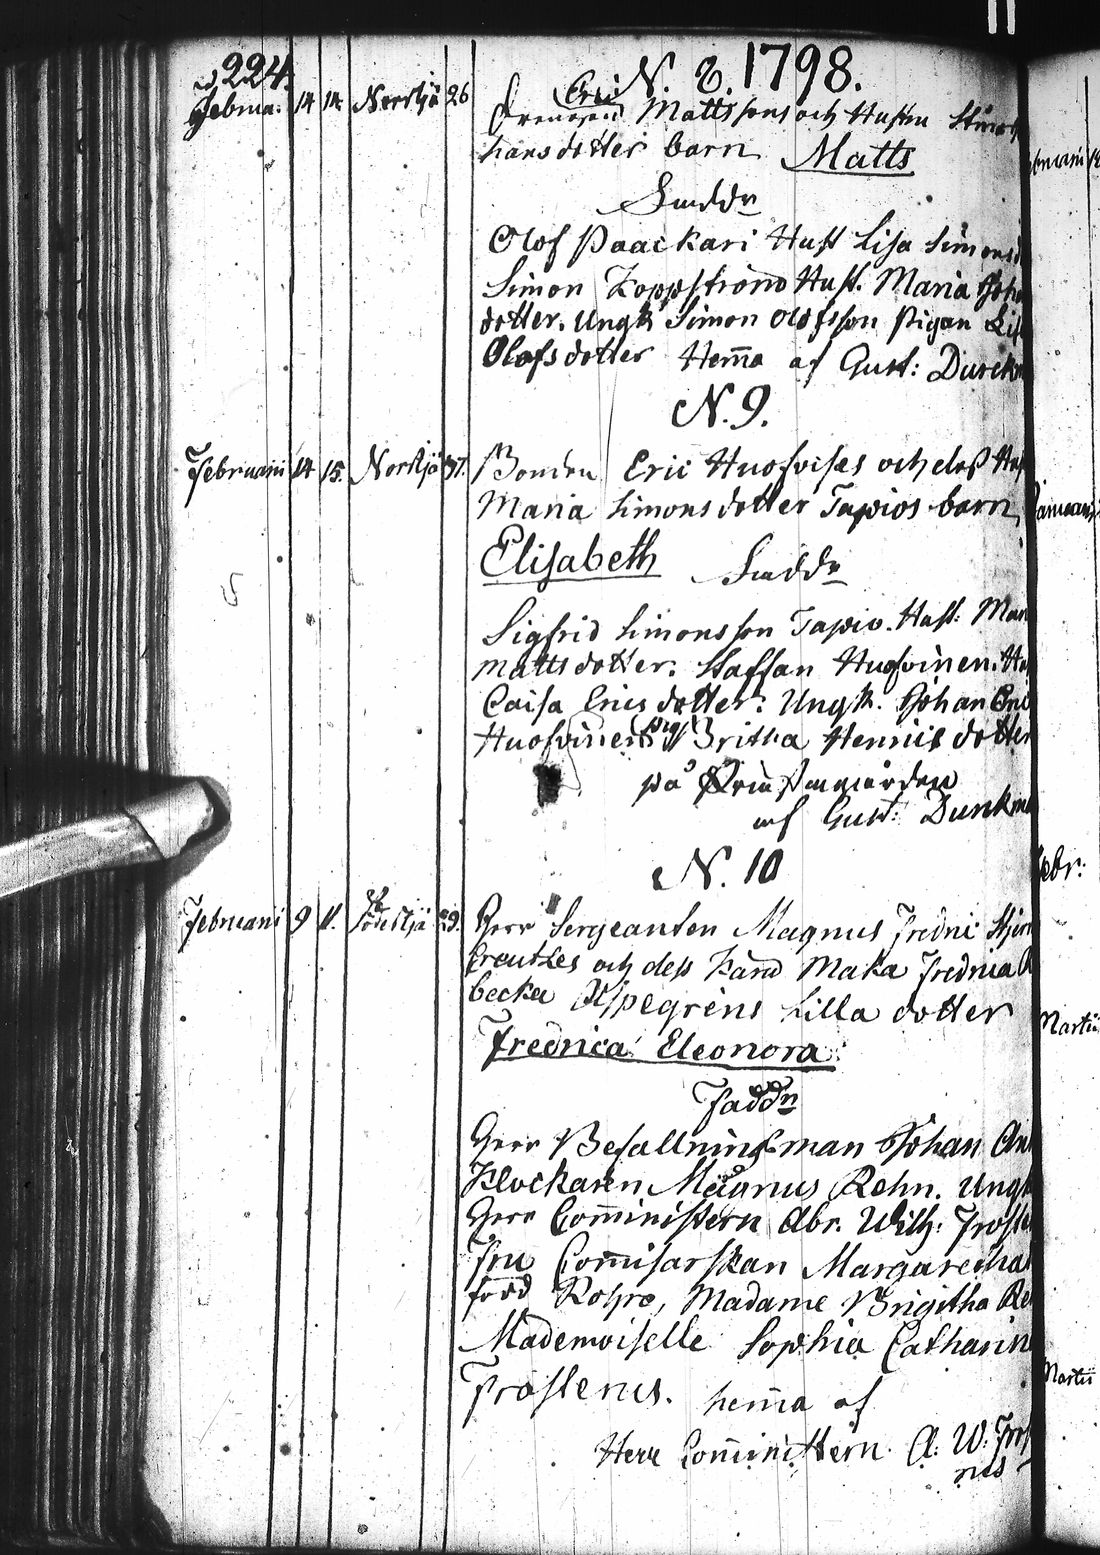 224. N. 8. 1798.
Februa. 14 14 Norrsjö 26 Eric
Drengen Mattssons och Hustru
hansdotter barn Matts
Faddr
Olof Paackari Hust Lisa Simons
Simon Koppströnd Hust. Maria Joha
dotter. Ungk Simon Olofsson Pigan Lis
Olofsdotter Hem̄a af Gust: Durckm
N. 9.
Februarii 14 15. Norsjö 37. Bonden Eric Huofvises och dess Hu
Maria Simonsdotter Tapios barn
Elisabeth Faddr
Sigfrid Simonsson Tapio. Hust: Mar
Mattsdotter. Staffan Huofvinen. Hu
Caisa Ericsdotter: Ungk. Johan Eric
Huofvinen Pig Britha Henricsdotter
på
af Gust: Dunkm
N. 10
Februarii 9 11. Södersjö 29. Herr Sergeanten Magnus Fredric Stjern
creutzes och dess kära Maka Fredrica R
becka Uspegrens Lilla dotter
Fredrica Eleonora.
Faddr
Herr Befallningsman Johan An
Klockaren Magnus Rehn. Ungk
Herr Com̄inistern Abr. Wilh: Froste
Fru Com̄isarskan Margaretha
född Rohre, Madame Brigitha Re
Mademoiselle Sophia Catharin
Frosterus. hem̄a af
Herr Com̄inistern A. W. Fros
rus
Februarii
Januarii
Febr:
Martii
Martii